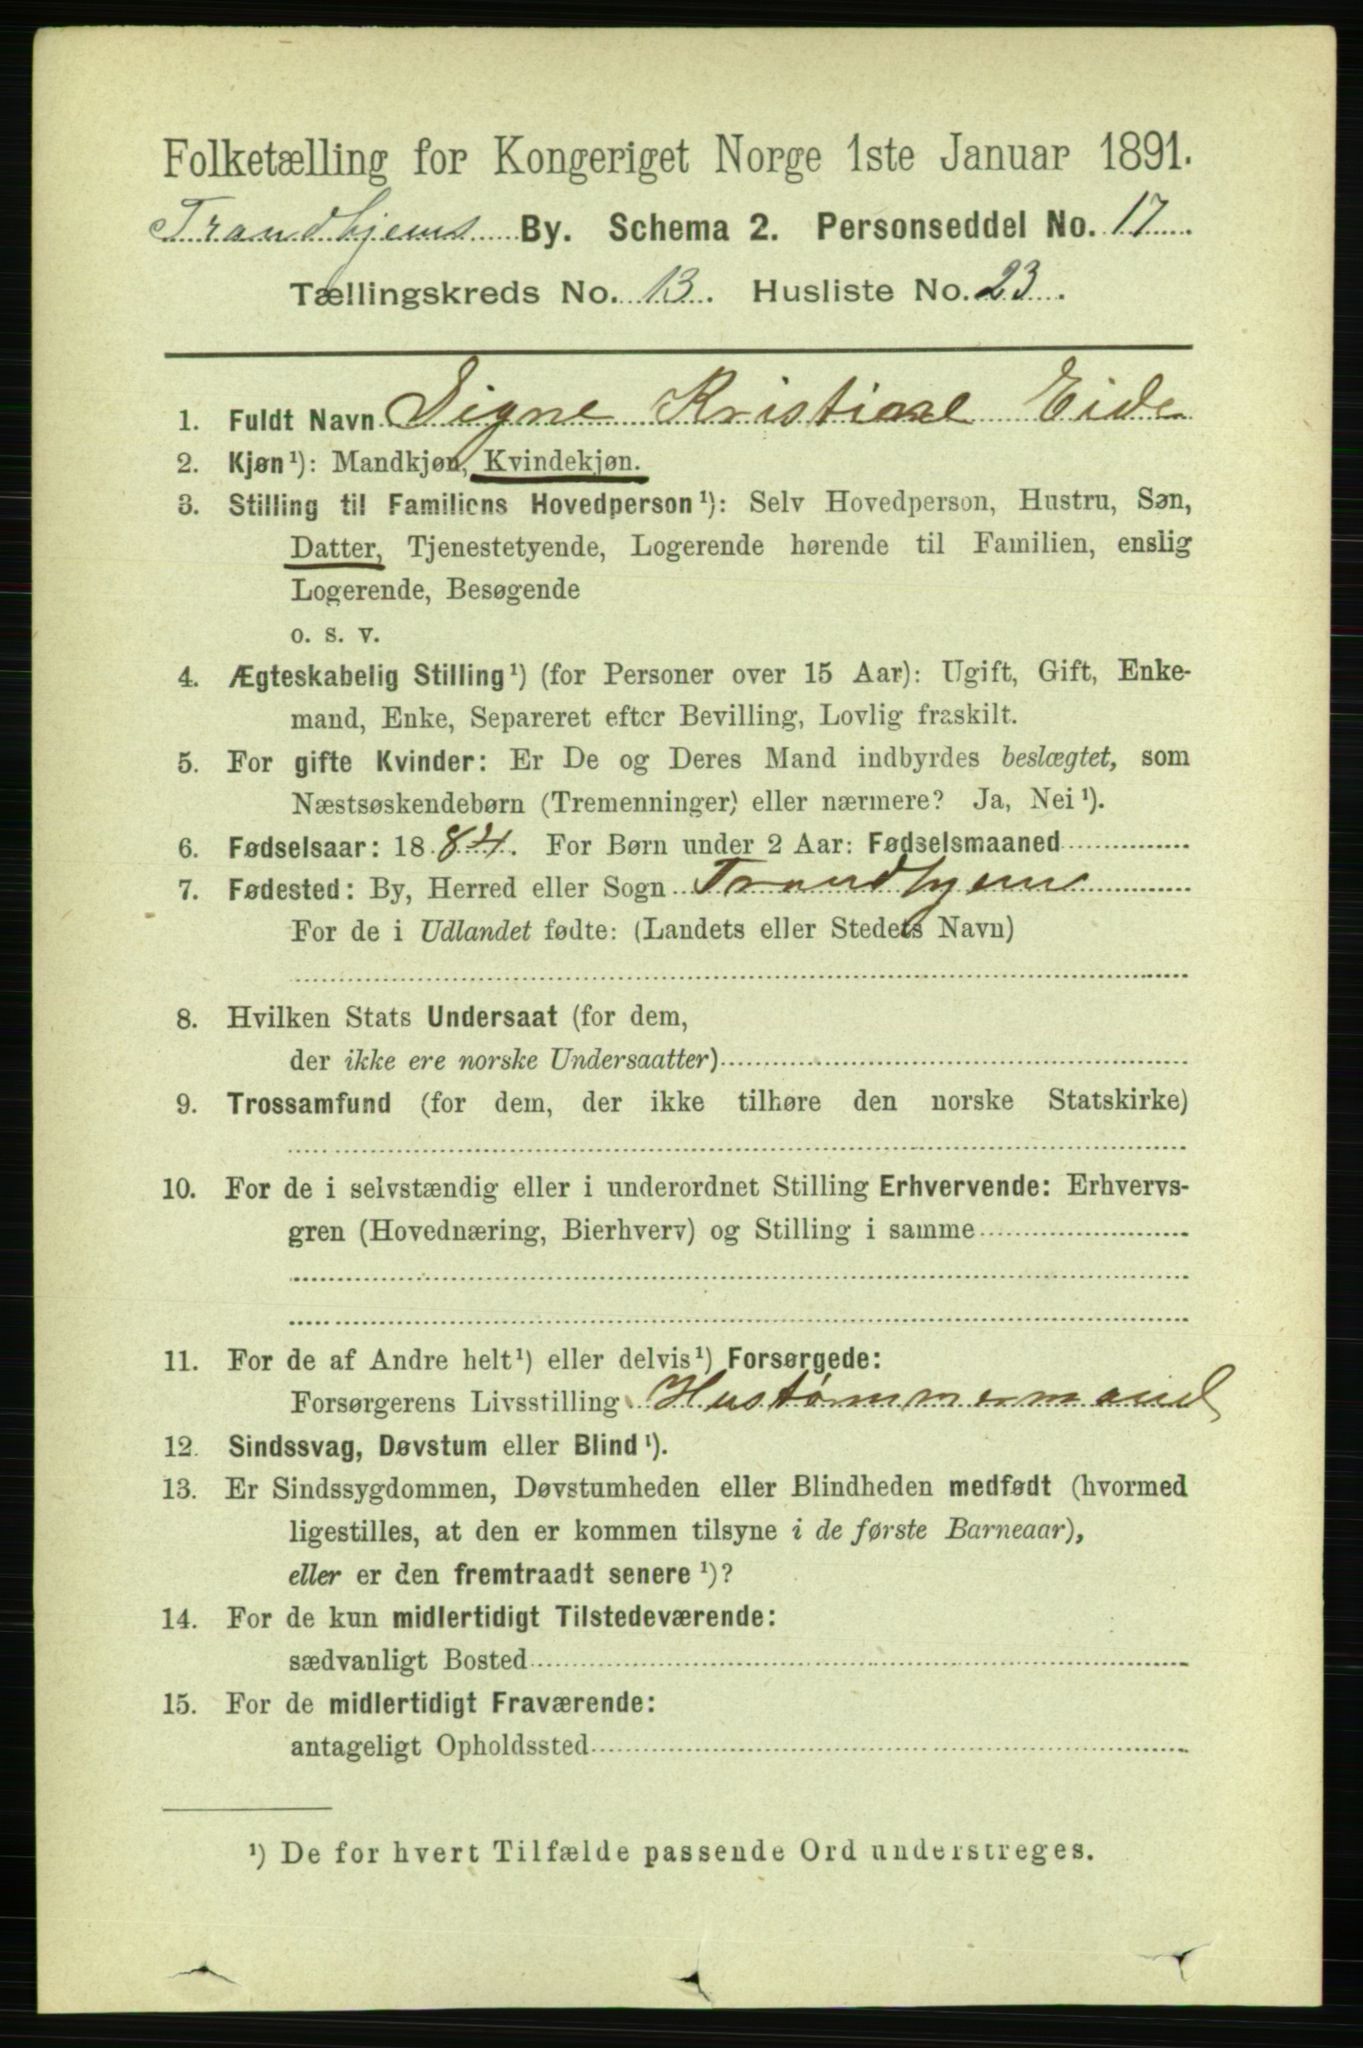 Folketælling for Kongeriget Norge 1ste Januar 1891.
Trondhjems By. Schema 2. Personseddel No. 17
Tællingskreds No. 13. Husliste No. 23.
1. Fuldt Navn Signe Kristine Eide
2. Kjøn¹): Mandkjøn, Kvindekjøn.
3. Stilling til Familiens Hovedperson¹): Selv Hovedperson, Hustru, Søn,
Datter, Tjenestetyende, Logerende hørende til Familien, enslig
Logerende, Besøgende
o. s. v.
4. Ægteskabelig Stilling¹) (for Personer over 15 Aar): Ugift, Gift, Enke-
mand, Enke, Separeret efter Bevilling, Lovlig fraskilt.
5. For gifte Kvinder: Er De og Deres Mand indbyrdes beslægtet, som
Næstsøskendebørn (Tremenninger) eller nærmere? Ja, Nei¹).
6. Fødselsaar: 1884. For Børn under 2 Aar: Fødselsmaaned
7. Fødested: By, Herred eller Sogn Trondhjem
For de i Udlandet fødte: (Landets eller Stedets Navn)
8. Hvilken Stats Undersaat (for dem,
der ikke ere norske Undersaatter)
9. Trossamfund (for dem, der ikke tilhøre den norske Statskirke)
10. For de i selvstændig eller i underordnet Stilling Erhvervende: Erhvervs-
gren (Hovednæring, Bierhverv) og Stilling i samme
11. For de af Andre helt¹) eller delvis¹) Forsørgede:
Forsørgerens Livsstilling Hustømmermand
12. Sindssvag, Døvstum eller Blind¹).
13. Er Sindssygdommen, Døvstumheden eller Blindheden medfødt (hvormed
ligestilles, at den er kommen tilsyne i de første Barneaar),
eller er den fremtraadt senere¹)?
14. For de kun midlertidigt Tilstedeværende:
sædvanligt Bosted
15. For de midlertidigt Fraværende:
antageligt Opholdssted
¹) De for hvert Tilfælde passende Ord understreges.